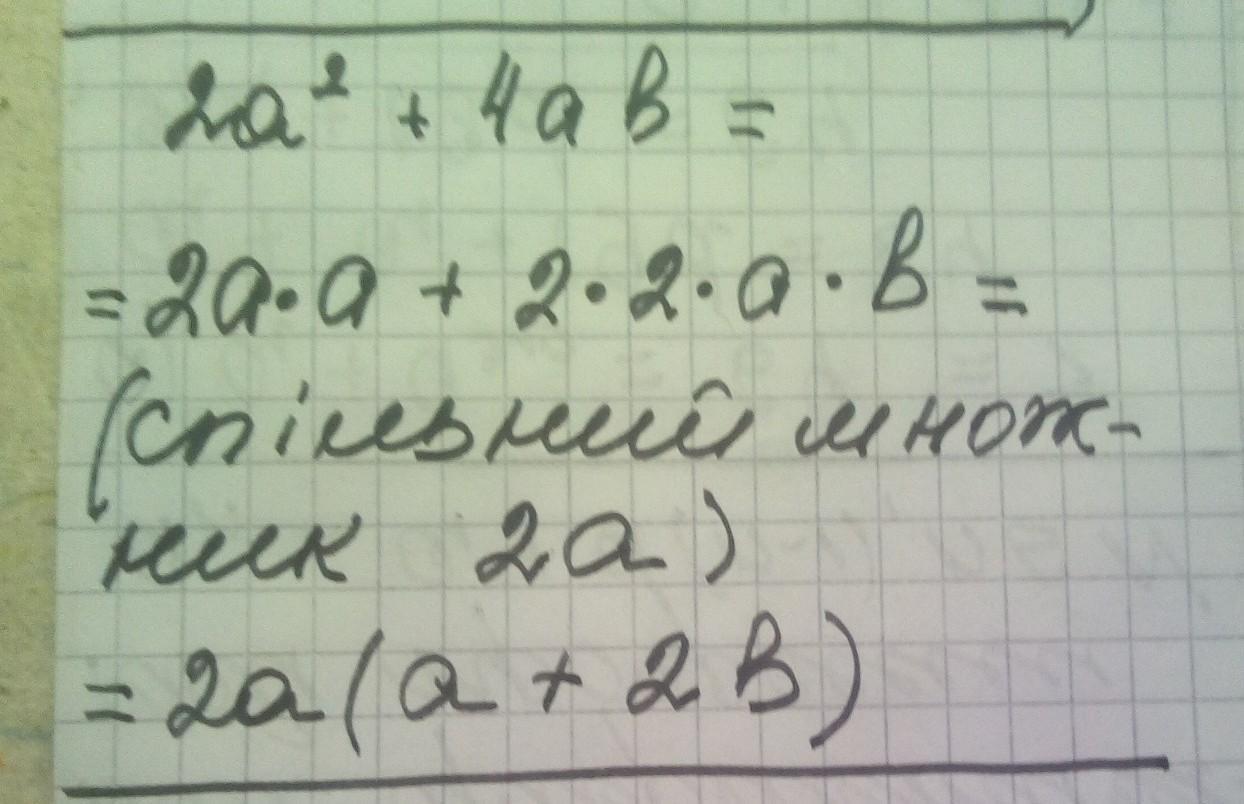 2a² + 4ab =
= 2a·a + 2·2·a·b =
(спільний множ-
ник 2a)
= 2a(a + 2b)